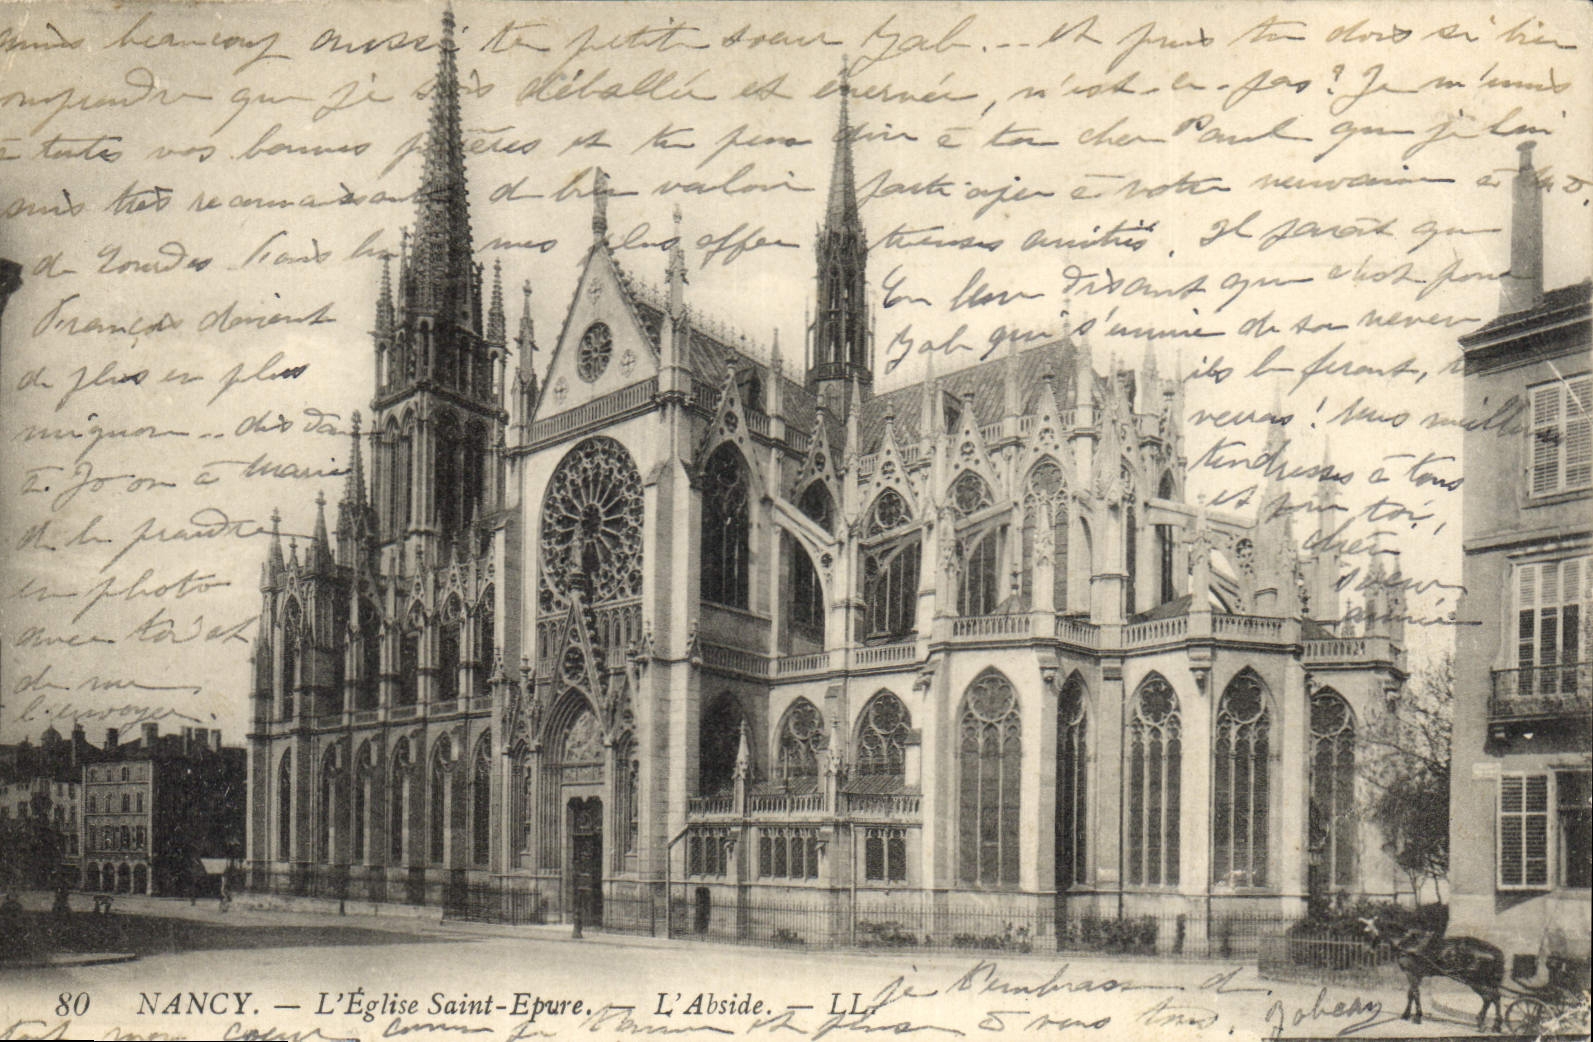 beaucoup aussi ta petite soeur Gab... et puis tu dois si bien
comprendre que je suis déballée et énervée, n'est-ce-pas? Je m'unis
à toutes vos bonnes prières et tu peux dire à ton cher Paul que je lui
suis très reconnaissante de bien vouloir faire à votre neuvaine à N.D.
de Lourdes mes plus affectueuses amitiés. Il paraît que
François devient
de plus en plus
mignon... dis donc
à Jo ou à Marie
de le prendre
en photo
avec toi et
de me
l'envoyer.
En leur disant que c'est pour
Gab qui s'ennuie de son neveu
ils le feront, tu
verras! Mes meilleures
tendresses à tous
et pour toi,
chère
soeur
aimée
je t'embrasse de
tout mon coeur comme je t'aime et pense à vous tous.
80 NANCY. — L'Église Saint-Epure. — L'Abside. — LL.